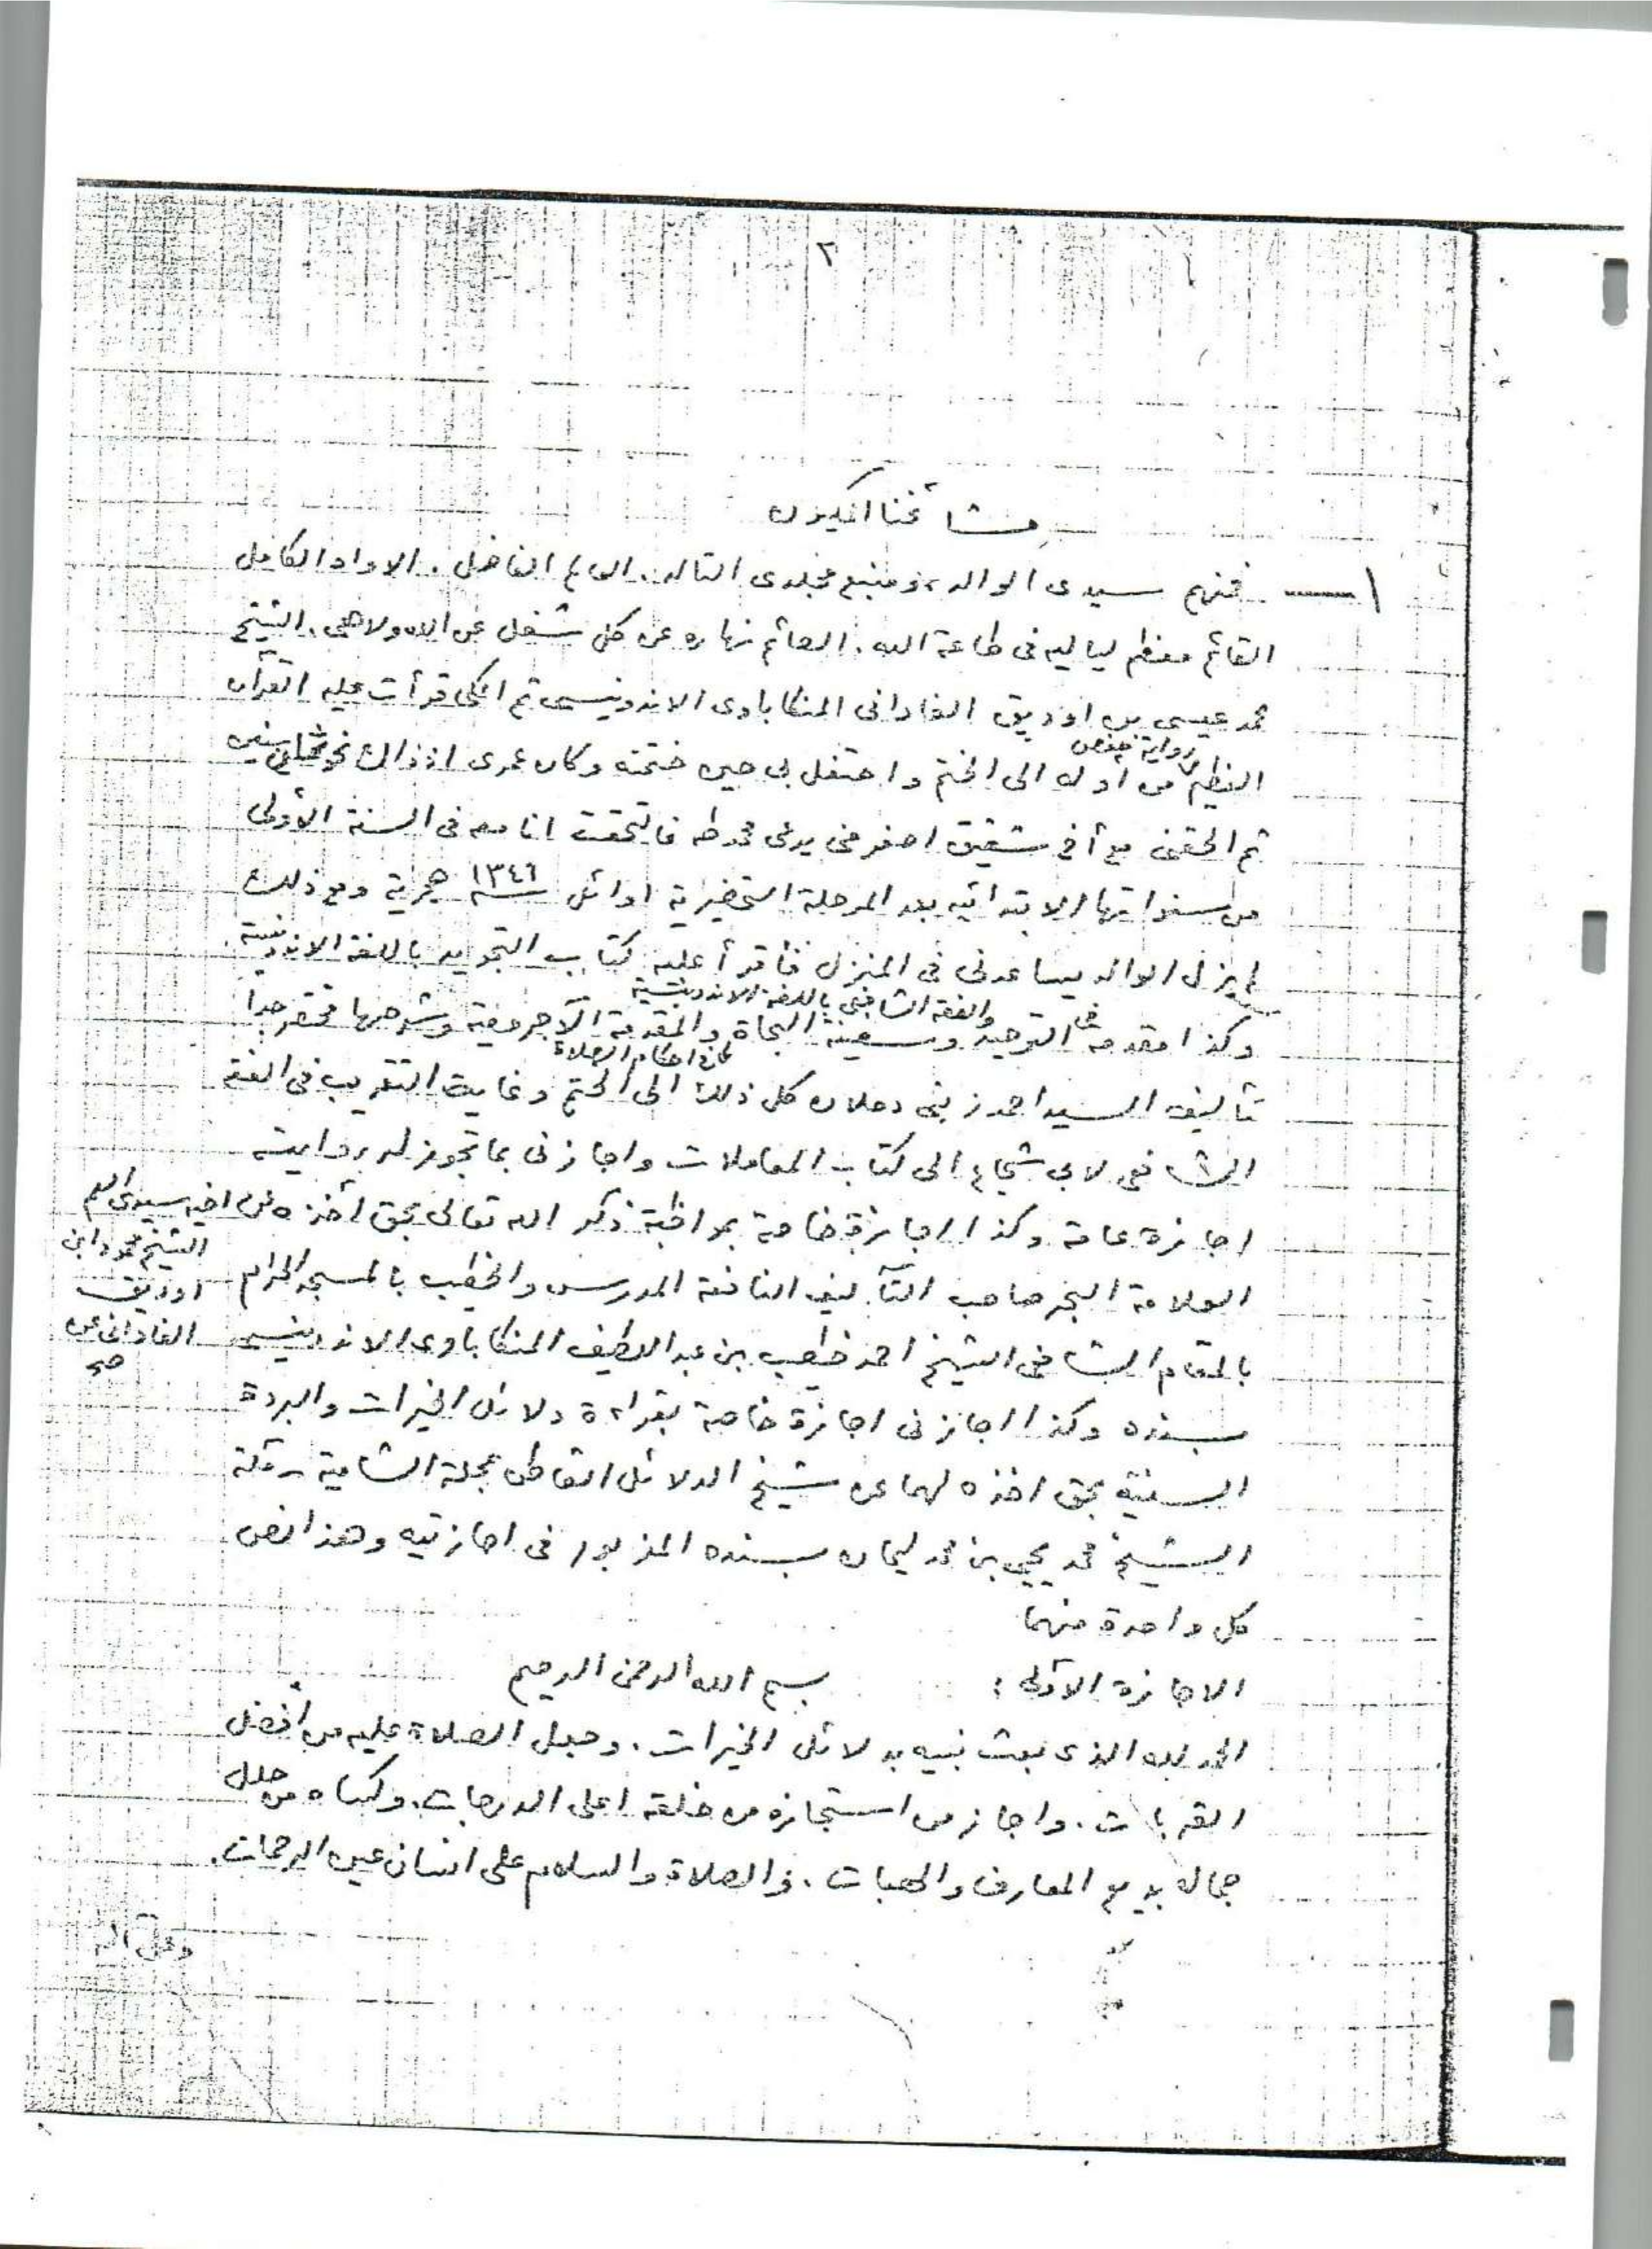 ٢
مشائخنا المكيون
١ — فمنهم سيدى الوالد، ومنبع مجلدى التالد. العالم الفاضل. الاواه الكامل
القائم معظم لياليه فى طاعة الله. الصائم نهاره عن كل شغل عن الاه ولاهى. الشيخ
محمد عيسى بن اوديق الفادانى المنكاباوى الاندونيسى ثم المكى قرأت عليه القرآن
برواية حفص
العظيم من أوله الى الختم واحتفل بى حين ختمته وكان عمرى اذ ذاك نحو ثمان سنين
ثم الحقنى مع أخ شقيق اصغر منى يدعى محمد طه فالتحقت انا معه فى السنة الأولى
من سنواتها الابتدائيه بعد المرحلة التحضيرية اوائل سنة ١٣٤٦ هجرية ومع ذلك
لم يزل الوالد يساعدنى فى المنزل فأقرأ عليه كتاب التجويد باللغة الاندونيسية
والفقه الشافعى باللغة الاندونيسية
وكذا مقدمة فى التوحيد وسفينة النجاة والمقدمة الآجرومية وشرحها مختصر جدا
احكام الصلاة
تأليف السيد احمد زينى دحلان كل ذلك الى الختم وغاية التقريب فى الفقه
الشافعى لابى شجاع الى كتاب المعاملات واجازنى بما تجوز له روايته
اجازة عامة وكذا اجازة خاصة بمواظبة ذكر الله تعالى بحق أخذه عن اخيه سيدى العم
الشيخ محمود ابن
اوديق
الفادانى عن
صح
العلامة البحر صاحب التآليف النافعة المدرس والخطيب بالمسجد الحرام
بالمقام الشافعى الشيخ احمد خطيب بن عبد اللطيف المنكاباوى الاندونيسى
بسنده وكذا اجازنى اجازة خاصة بقراءة دلائل الخيرات والبردة
السنية بحق اخذه لهما عن شيخ الدلائل القاطن بمحلة الشامية بمكة
الشيخ محمد يحيى بن محمد ليمان بسنده المزبور فى اجازتيه وهذا نص
كل واحدة منهما
الاجازة الأولى : بسم الله الرحمن الرحيم
الحمد لله الذى بعث نبيه بدلائل الخيرات. وجعل الصلاة عليه من أفضل
القربات. واجاز من استجازه من خلقه اعلى الدرجات. وكساه من حلل
جماله بديع المعارف والهبات. والصلاة والسلام على انسان عين الرحمات.
وعلى آله